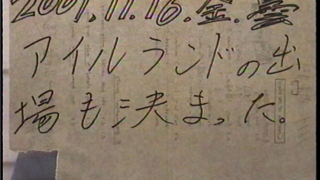 2001.11.16.金.曇
アイルランドの出
場も決まった。